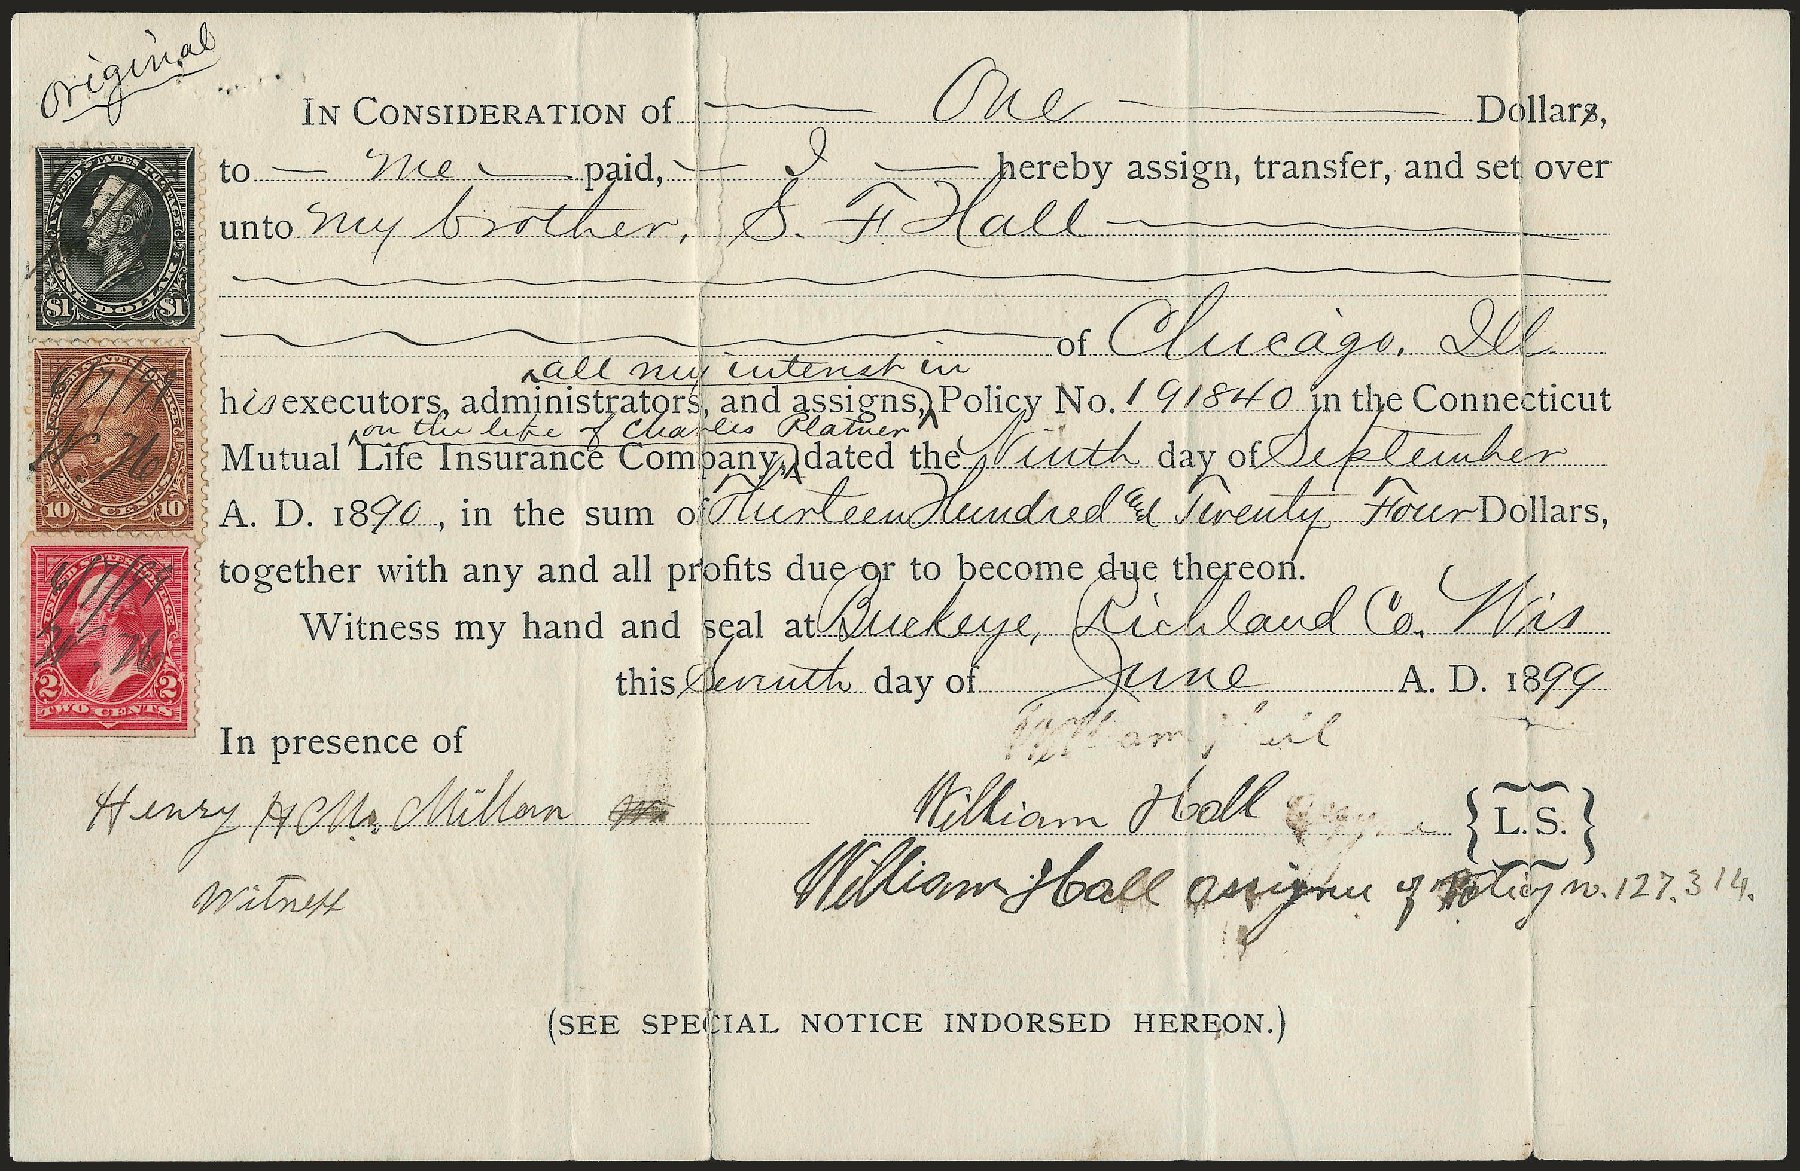 Original
In Consideration of One Dollars,
to me paid, I hereby assign, transfer, and set over
unto my brother, S. F. Hall
of Chicago, Ill.
all my interest in
his executors, administrators, and assigns, Policy No. 191840 in the Connecticut
on the life of Charles Platner
Mutual Life Insurance Company, dated the Ninth day of September
A. D. 1890, in the sum of Thirteen Hundred and Twenty Four Dollars,
together with any and all profits due or to become due thereon.
Witness my hand and seal at Buckeye, Richland Co. Wis
this Seventh day of June A. D. 1899
In presence of
William
Henry H Mc Millan William Hall L.S.
Witness William Hall assignee of Policy no. 127.314.
(SEE SPECIAL NOTICE INDORSED HEREON.)
$1 ONE DOLLAR $1
6/7/99
W. H.
10 CENTS 10
6/7/99
W. H.
2 TWO CENTS 2